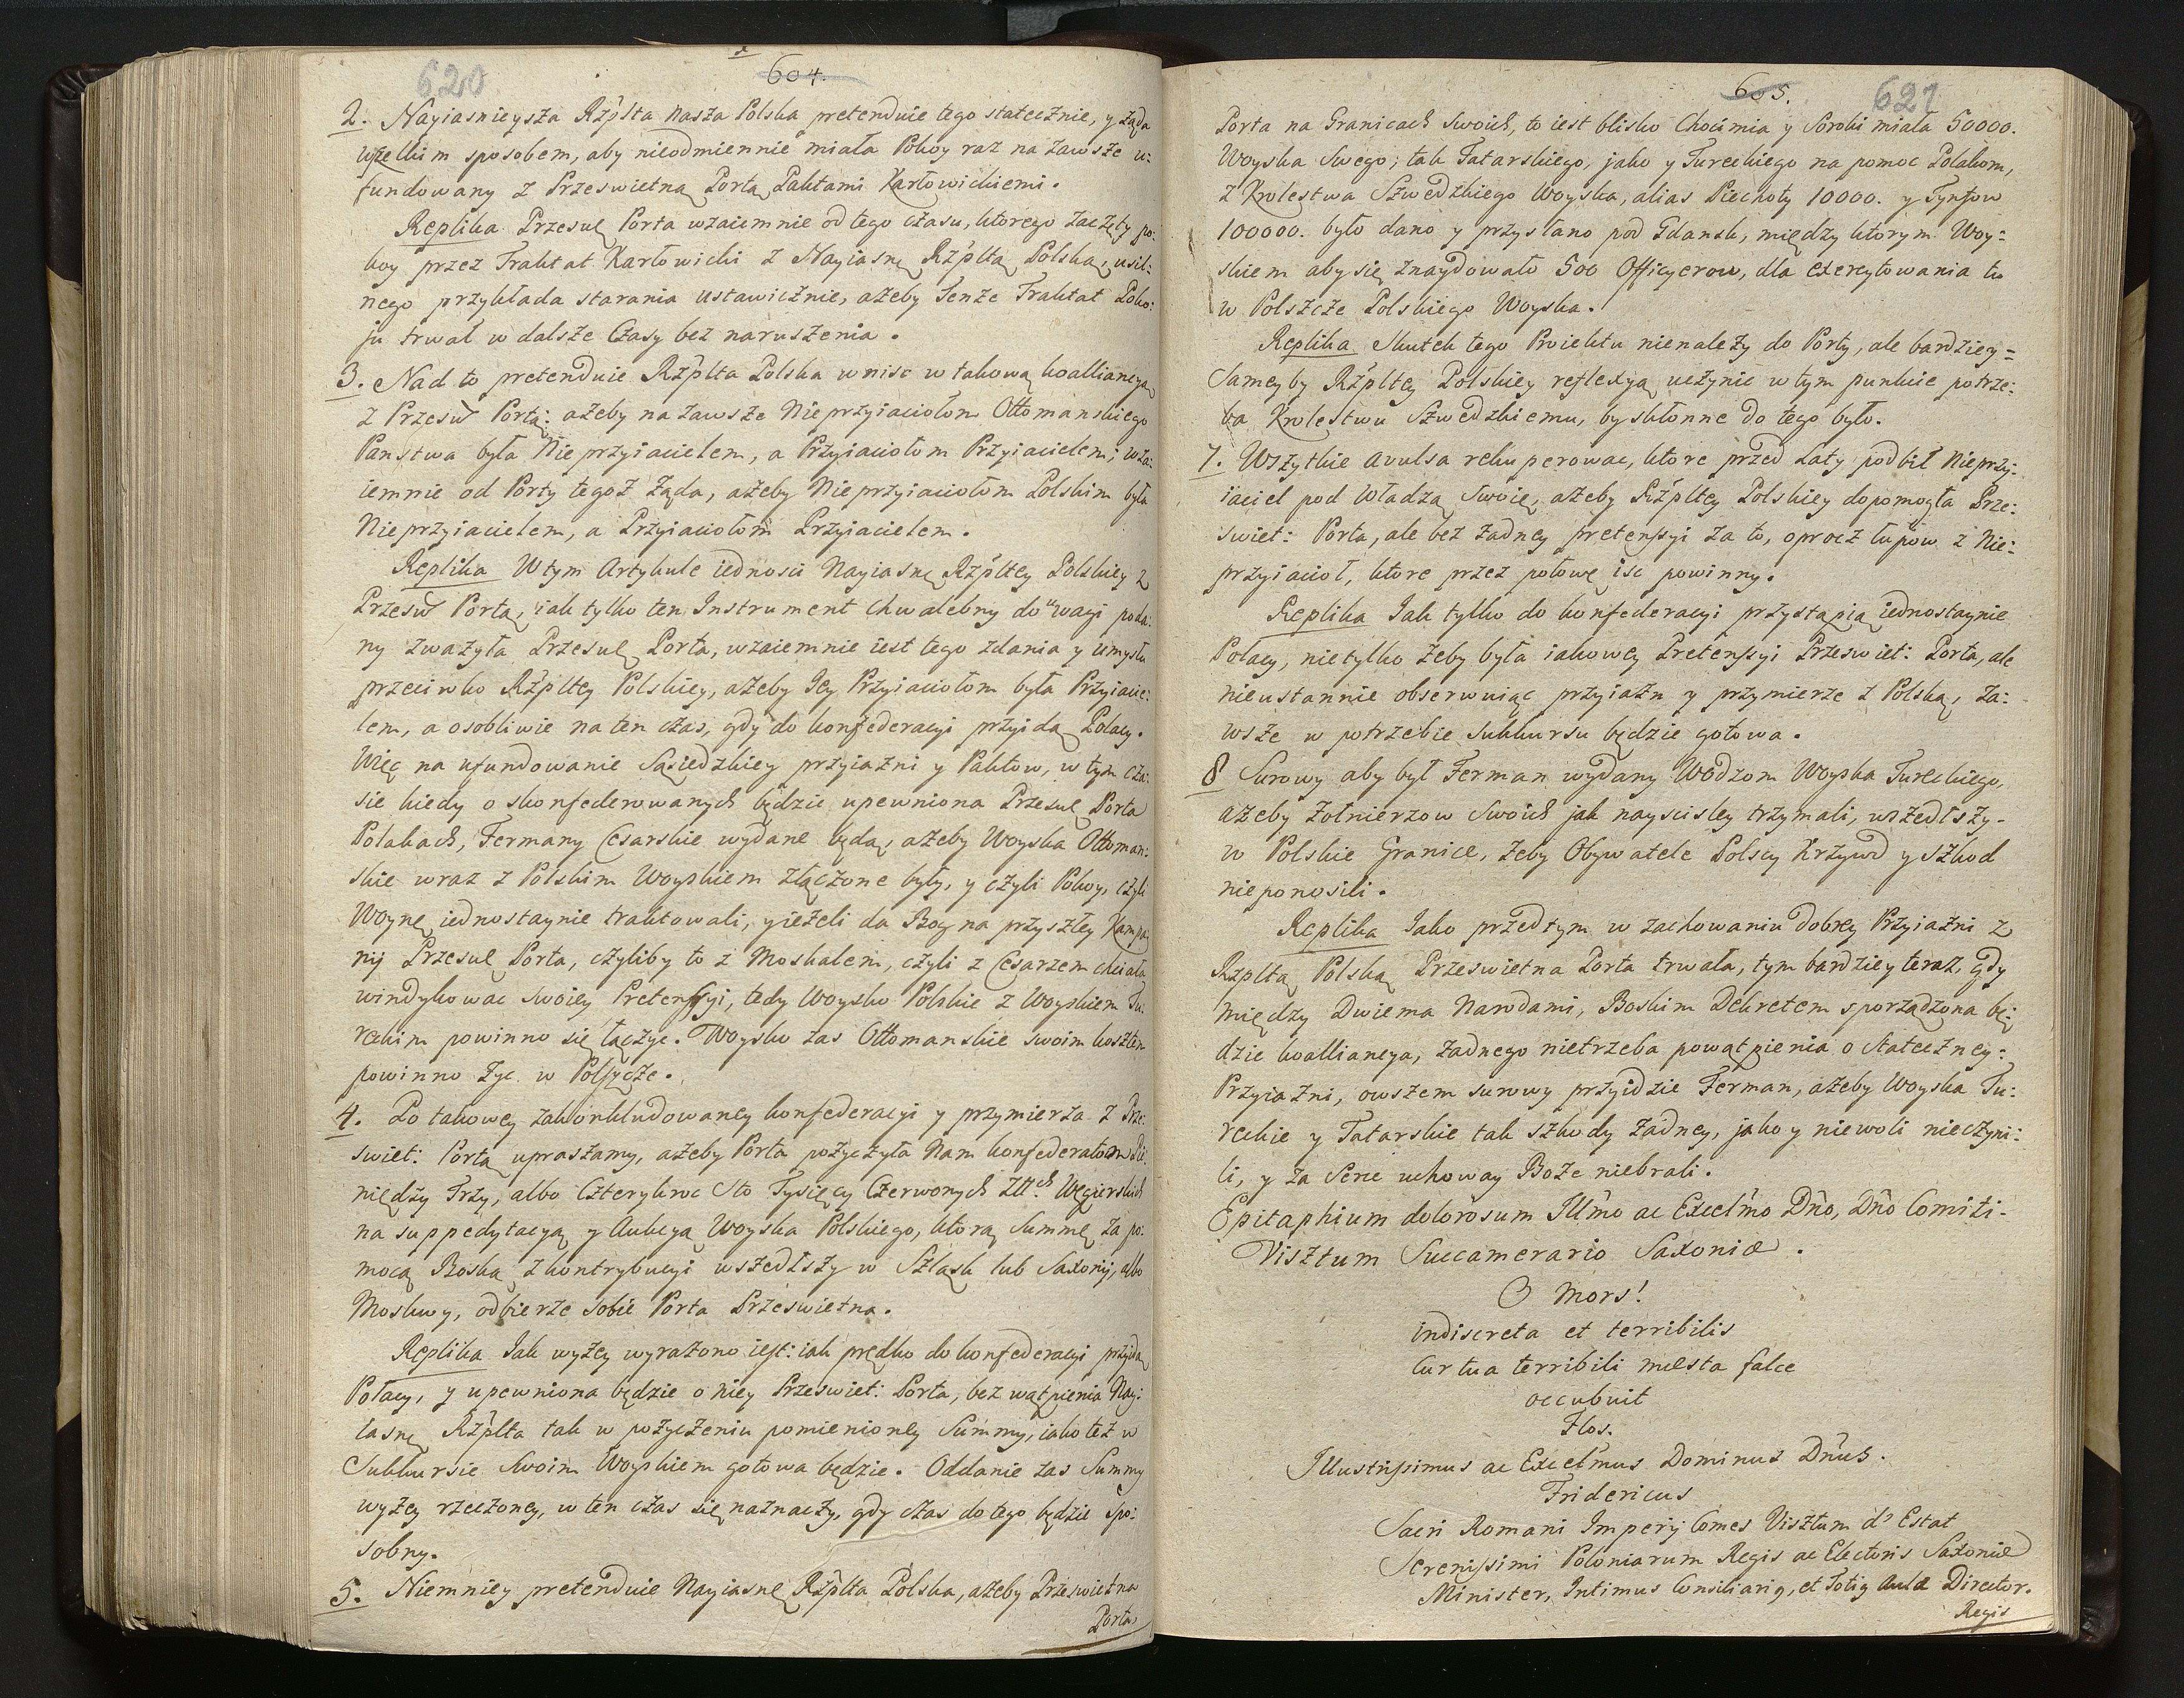 620
604.
2. Nayiasnieysza Rzplta nasza Polska pretenduie tego statecznie, y ząda
wszelkim sposobem, aby nieodmiennie miała Pokoy raz na zawsze u:
fundowany z Przeswietną Portą Paktami Karłowickiemi.
Replika Przeswę Porta wzaiemnie od tego czasu, ktorego zaczęty po:
koy przez Traktat Karłowicki z Nayiasnę Rzpltą Polską, usil:
nego przykłada starania ustawicznie, ażeby Tenże Traktat Poko:
ju trwał w dalsze Czasy bez naruszenia.
3. Nad to pretenduie Rzplta Polska wnisc w takową koalliancyą
z Przesw Portą: ażeby na zawsze Nieprzyiaciołom Ottomanskiego
Panstwa była Nieprzyiacielem, a Przyiaciołom Przyiacielem; wza:
iemnie od Porty tegoż ząda, ażeby Nieprzyiaciołom Polskim była
Nieprzyiacielem, a Przyiaciołom Przyiacielem.
Replika W tym Artykule iednosci Nayiasnę Rzpltey Polskiey z
Przesw Portą, iak tylko ten Instrument chwalebny do uwagi poda:
ny zważyła Przeswę Porta, wzaiemnie iest tego zdania y umysłu
przeciwko Rzpltey Polskiey, ażeby Jey Przyiaciołom była Przyiacie:
lem, a osobliwie na ten czas, gdy do konfederacyi przyidą Polacy.
Więc na ufundowanie Sąsiedzkiey przyiazni y Paktow, w tym cza:
sie kiedy o skonfederowanych będzie upewniona Przeswę Porta
Polakach, Fermany Cesarskie wydane będą, ażeby Woyska Ottoman:
skie wraz z Polskim Woyskiem złączone były, y czyli Pokoy, czyli
Woynę iednostaynie traktowali, y ieżeli da Bog na przyszłey Kampa
nij Przeswę Porta, czyliby to z Moskalem, czyli z Cesarzem chciała
windykowac swoiey Pretensyi, tedy Woysko Polskie z Woyskiem Tu:
reckim powinno się łączyc. Woysko zas Ottomanskie swoim kosztem
powinno zyc w Polszcze.
4. Po takowey zakonkludowaney konfederacyi y przymierza z Prze:
swiet: Portą upraszamy, ażeby Porta pożyczyła Nam konfederatom Pie:
niędzy Trzy, albo Czterykroc Sto Tysięcy Czerwonych Złłch Węgierskich
na suppedytacyą y Aukcyą Woyska Polskiego, ktorą Summę za po:
mocą Boską z kontrybucyi wszedłszy w Szląsk lub Saxonij, albo
Moskwy, odbierze sobie Porta Przeswietna.
Replika Jak wyżey wyrażono iest: iak prędko do konfederacyi przyida
Polacy, y upewniona będzie o niey Przeswiet: Porta, bez wątpienia Nay:
iasnę Rzplta tak w pożyczeniu pomienioney Summy, iako też w
Sukkursie Swoim Woyskiem gotowa będzie. Oddanie zas Summy
wyżey rzeczoney, w ten czas się naznaczy, gdy czas do tego będzie spo:
sobny.
5. Niemniey pretenduie Nayiasnę Rzplta Polska, ażeby Przeswietna
Porta
605.
621
Porta na Granicach Swoich, to iest blisko Chocimia y Soroki miała 50000.
Woyska Swego; tak Tatarskiego, jako y Tureckiego na pomoc Polakom,
z Krolestwa Szwedzkiego Woyska, alias Piechoty 10000. y Tynfow
100000. było dano y przysłano pod Gdansk, między ktorym Woy:
skiem aby się znaydowało 500 Officyerow, dla exercytowania tu
w Polszcze Polskiego Woyska.
Replika Skutek tego Proiektu nienależy do Porty, ale bardziey=
Sameyby Rzpltey Polskiey reflexyą uczynic w tym punkcie potrze:
ba Krolestwu Szwedzkiemu, by skłonne do tego było.
7. Wszytkie avulsa rekuperowac, ktore przed Laty podbił Nieprzy:
iaciel pod Władzą Swoię, ażeby Rzpltey Polskiey dopomogła Prze:
swiet: Porta, ale bez żadney pretensyi za to, oprocz łupow z Nie:
przyiacioł, ktore przez połowę isc powinny.
Replika Jak tylko do konfederacyi przystąpią iednostaynie
Polacy, nietylko żeby była iakowey Pretensyi Przeswiet: Porta, ale
nieustannie obserwuiąc przyiazn y przymierze z Polską, za:
wsze w potrzebie Sukkursu będzie gotowa.
8 Surowy aby był Ferman wydany Wodzom Woyska Tureckiego,
ażeby Zołnierzow Swoich jak nayscisley trzymali, wszedłszy-
w Polskie Granice, żeby Obywatele Polscy Krzywd y szkod
nieponosili.
Replika Jako przedtym w zachowaniu dobrey Przyiazni z
Rzpltą Polską Przeswietna Porta trwała, tym bardziey teraz, gdy
między Dwiema Narodami, Boskim Dekretem sporządzona bę:
dzie koalliancya, żadnego nietrzeba powątpienia o stateczney:
Przyiazni, owszem surowy przyidzie Ferman, ażeby Woyska Tu:
reckie y Tatarskie tak szkody żadney, jako y niewoli nieczyni:
li, y za Serie uchoway Boże niebrali.
Epitaphium dolorosum Illmo ac Excelmo Dno, Dno Comiti-
Visztum Succamerario Saxoniæ.
O Mors!
indiscreta et terribilis
Cur tua terribili mæsta falce
occubuit
Flos.
Illustrissimus ac Excelmus Dominus Dnus.
Fridericus
Sacri Romani Imperij Comes Visztum d'Estat
Serenissimi Poloniarum Regis ac Electoris Saxoniæ
Minister, Intimus Consiliarig, et Totig Aulæ Director.
Regis